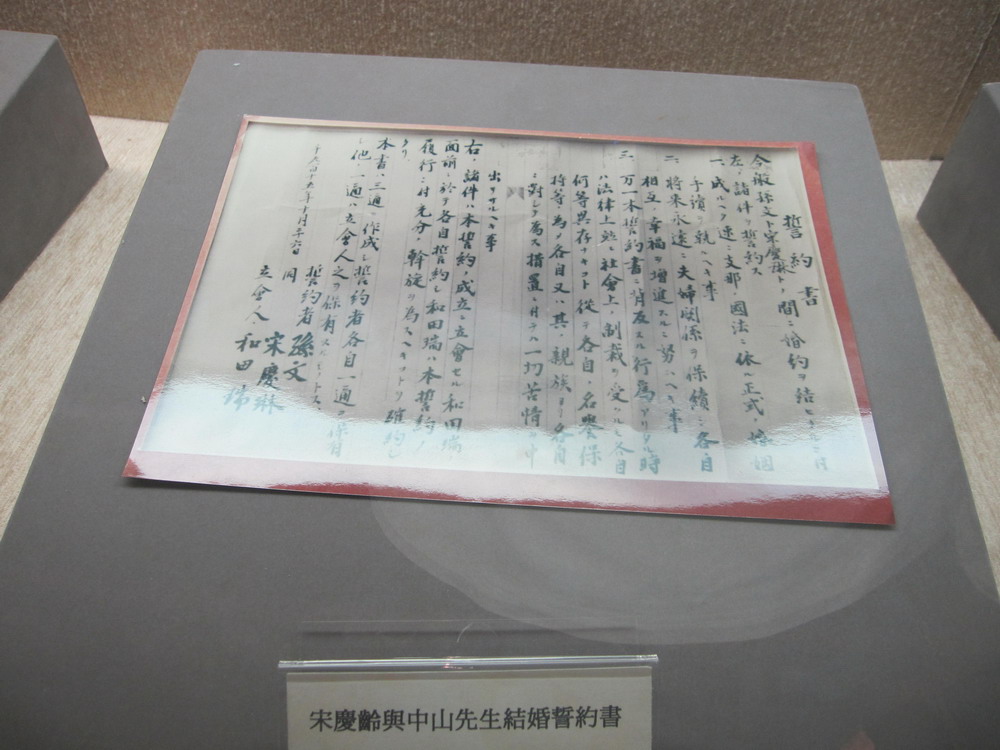 誓約書
今般孫文ト宋慶琳トノ間ニ婚約ヲ結ヒ
左ノ諸件ヲ誓約ス
一、成ルヘク速ニ支那ノ國法ニ依ル正式ノ婚姻
手續ヲ執ルヘキ事
二、將来永遠ニ夫婦関係ヲ保續シ各自
相互ノ幸福ヲ増進スルニ努ムヘキ事
三、万一本誓約書ニ背反スル行為アリタル時
ハ法律上然カモ社會上ノ制裁ヲ受クルモ各自
何等異存ナキコト従テ各自ノ名譽保
持等ノ為メ各自又ハ其ノ親族ヨリ各自
ニ對シテ為ス措置ニ付テハ一切苦情ヲ申
出テサルヘキ事
右ノ諸件ハ本誓約ノ成立ニ立會セル和田瑞
面前ニ於テ各自誓約シ和田瑞ハ本誓約ノ
履行ニ付充分ノ斡旋ヲ為スヘキコトヲ確約シ
タリ
本書ハ三通ヲ作成シ誓約者各自一通ヲ保有
シ他ノ一通ハ立會人之ヲ保有スルモノトス
千九百十五年十月二十六日
誓約者 孫文
同 宋慶琳
立會人 和田瑞
宋慶齡與中山先生結婚誓約書